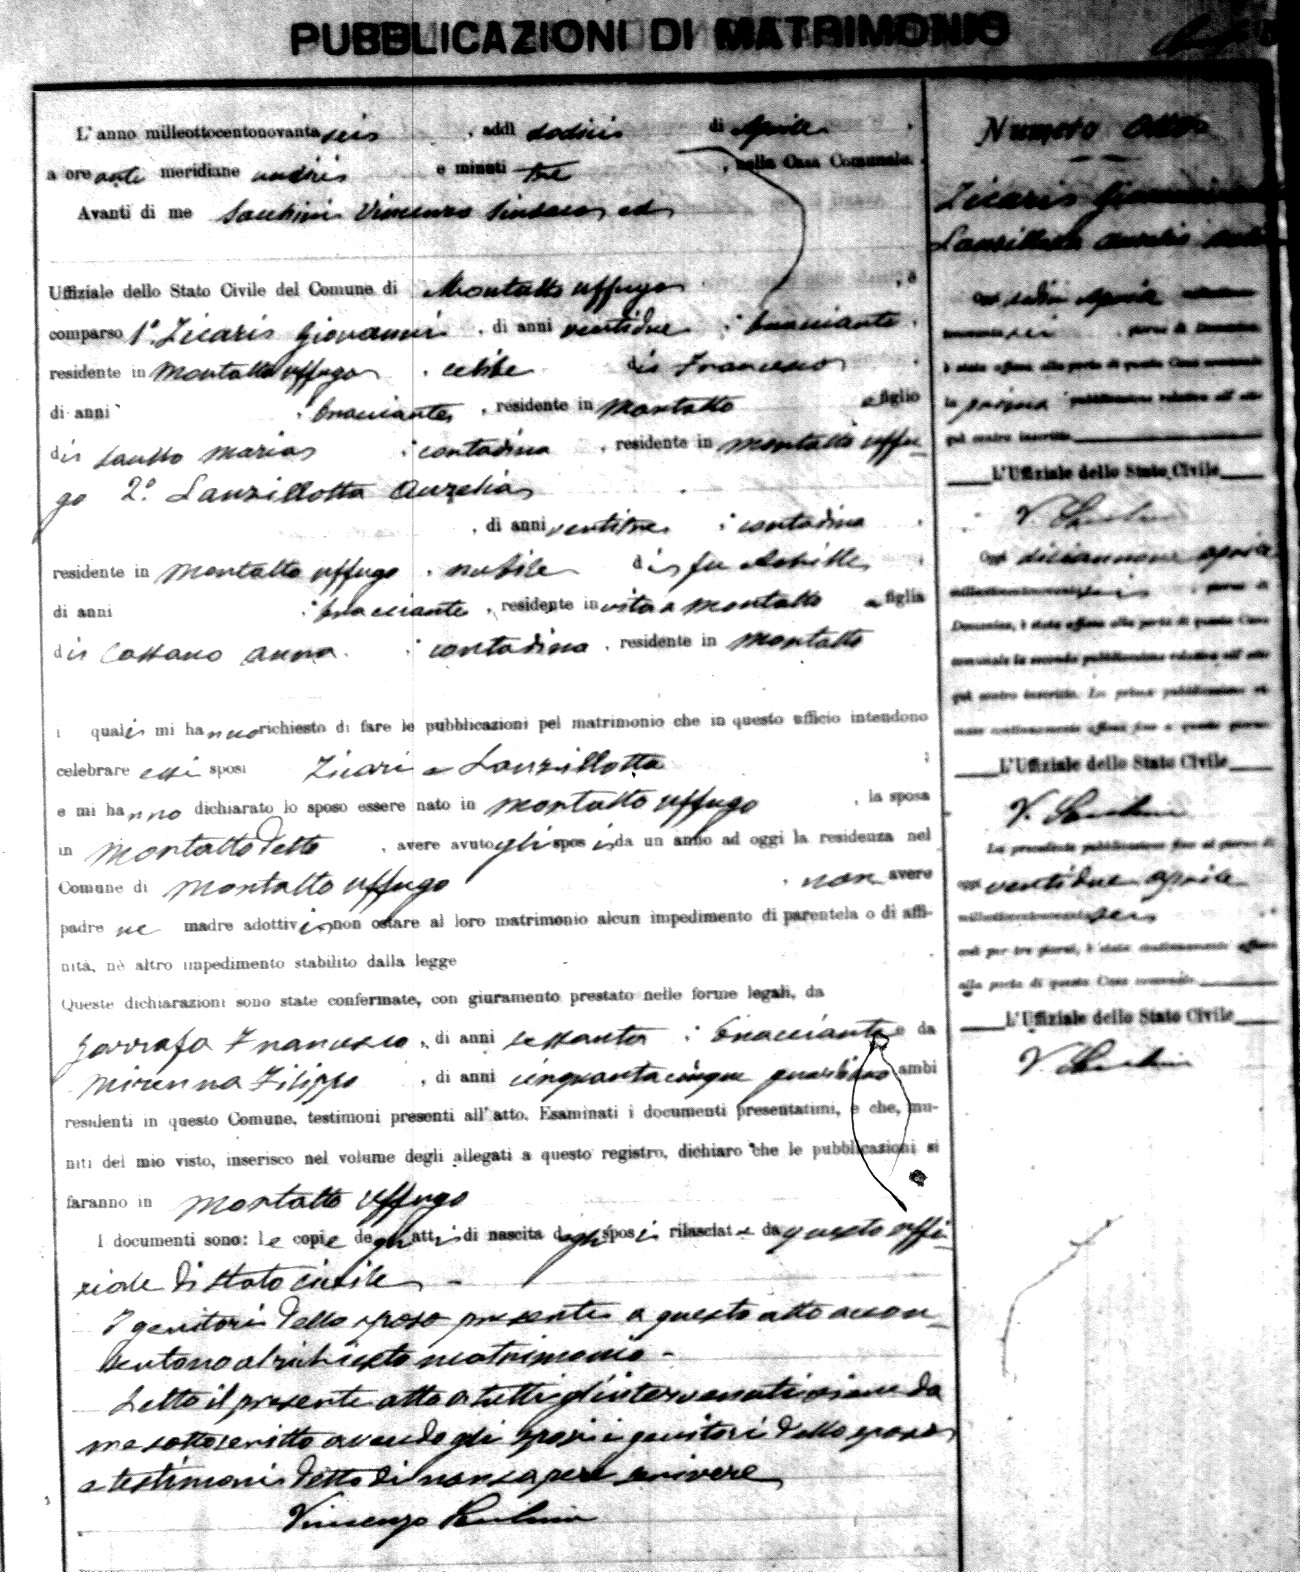 PUBBLICAZIONI DI MATRIMONIO
L'anno milleottocentonovanta seis , addì dodicis di Aprile
a ore anti meridiane undicis e minuti tre , nella Casa Comunale.
Avanti di me Vincenzo Sindaco ed
Uffiziale dello Stato Civile del Comune di Montalto uffugo , è
comparso 1°. Zicaris Giovanni , di anni ventidue : bracciante .
residente in Montalto uffugo . celibe dis Francesco
di anni : bracciante , residente in Montalto e figlio
dis Marias : contadina , residente in Montalto uffu-
go 2°. Lanzillotta Aurelia
, di anni ventitre : contadina .
residente in Montalto uffugo . nubile dis fu Achille
di anni : bracciante , residente in vita a Montalto e figlia
dis Cassano Anna . : contadina . residente in Montalto
i qualis mi hanno richiesto di fare le pubblicazioni pel matrimonio che in questo ufficio intendono
celebrare essi sposi Zicari e Lanzillotta ;
e mi hanno dichiarato lo sposo essere nato in Montalto uffugo , la sposa
in Montalto detto , avere avuto gli sposi da un anno ad oggi la residenza nel
Comune di Montalto uffugo , non avere
padre ne madre adottivi non ostare al loro matrimonio alcun impedimento di parentela o di affi-
nità, nè altro impedimento stabilito dalla legge .
Queste dichiarazioni sono state confermate, con giuramento prestato nelle forme legali, da
Garrafa Francesco , di anni sessanta : bracciante e da
Mirenna Filippo , di anni cinquantacinque guardiano ambi
residenti in questo Comune, testimoni presenti all'atto. Esaminati i documenti presentatimi, e che, mu-
niti del mio visto, inserisco nel volume degli allegati a questo registro, dichiaro che le pubblicazioni si
faranno in Montalto uffugo
I documenti sono: le copie degli atti di nascita degli sposi rilasciate da questo uffi-
ziale di stato civile -
I genitori dello sposo presenti a questo atto accon-
sentono al richiesto matrimonio -
Letto il presente atto a tutti gl'intervenuti viene da
me sottoscritto avendo gli sposi i genitori dello sposo
e testimoni detto di non sapere scrivere
Vincenzo
Numero otto
Zicaris Giovanni
Lanzillotta Aurelia
Oggi dodici Aprile milleottocento
novantasei , giorno di Domenica
è stata affissa alla porta di questa Casa comunale
la prima pubblicazione relativa all'atto
qui contro inscritto
L'Uffiziale dello Stato Civile
V.
Oggi diciannove aprile
milleottocentonovantaseis , giorno di
Domenica, è stata affissa alla porta di questa Casa
comunale la seconda pubblicazione relativa all'atto
qui contro inscritto. La prima pubblicazione ri-
mase continuamente affissa fino a questo giorno
L'Uffiziale dello Stato Civile
V.
La precedente pubblicazione fino al giorno di
oggi ventidue aprile
milleottocentonovantaseis
così per tre giorni, è stata continuamente affissa
alla porta di questa Casa comunale
L'Uffiziale dello Stato Civile
V.